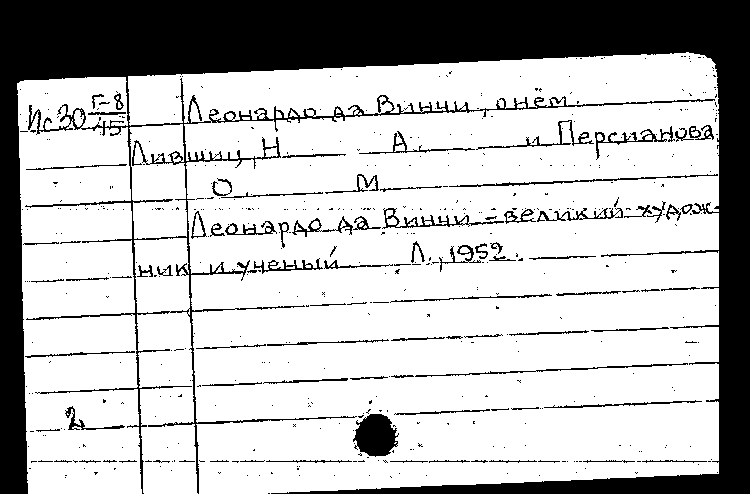 Ис30 Г-8/45 Леонардо да Винчи, о нём.
Лившиц, Н. А. и Персианова
О. М.
Леонардо да Винчи - великий худож-
ник и ученый Л., 1952.
2